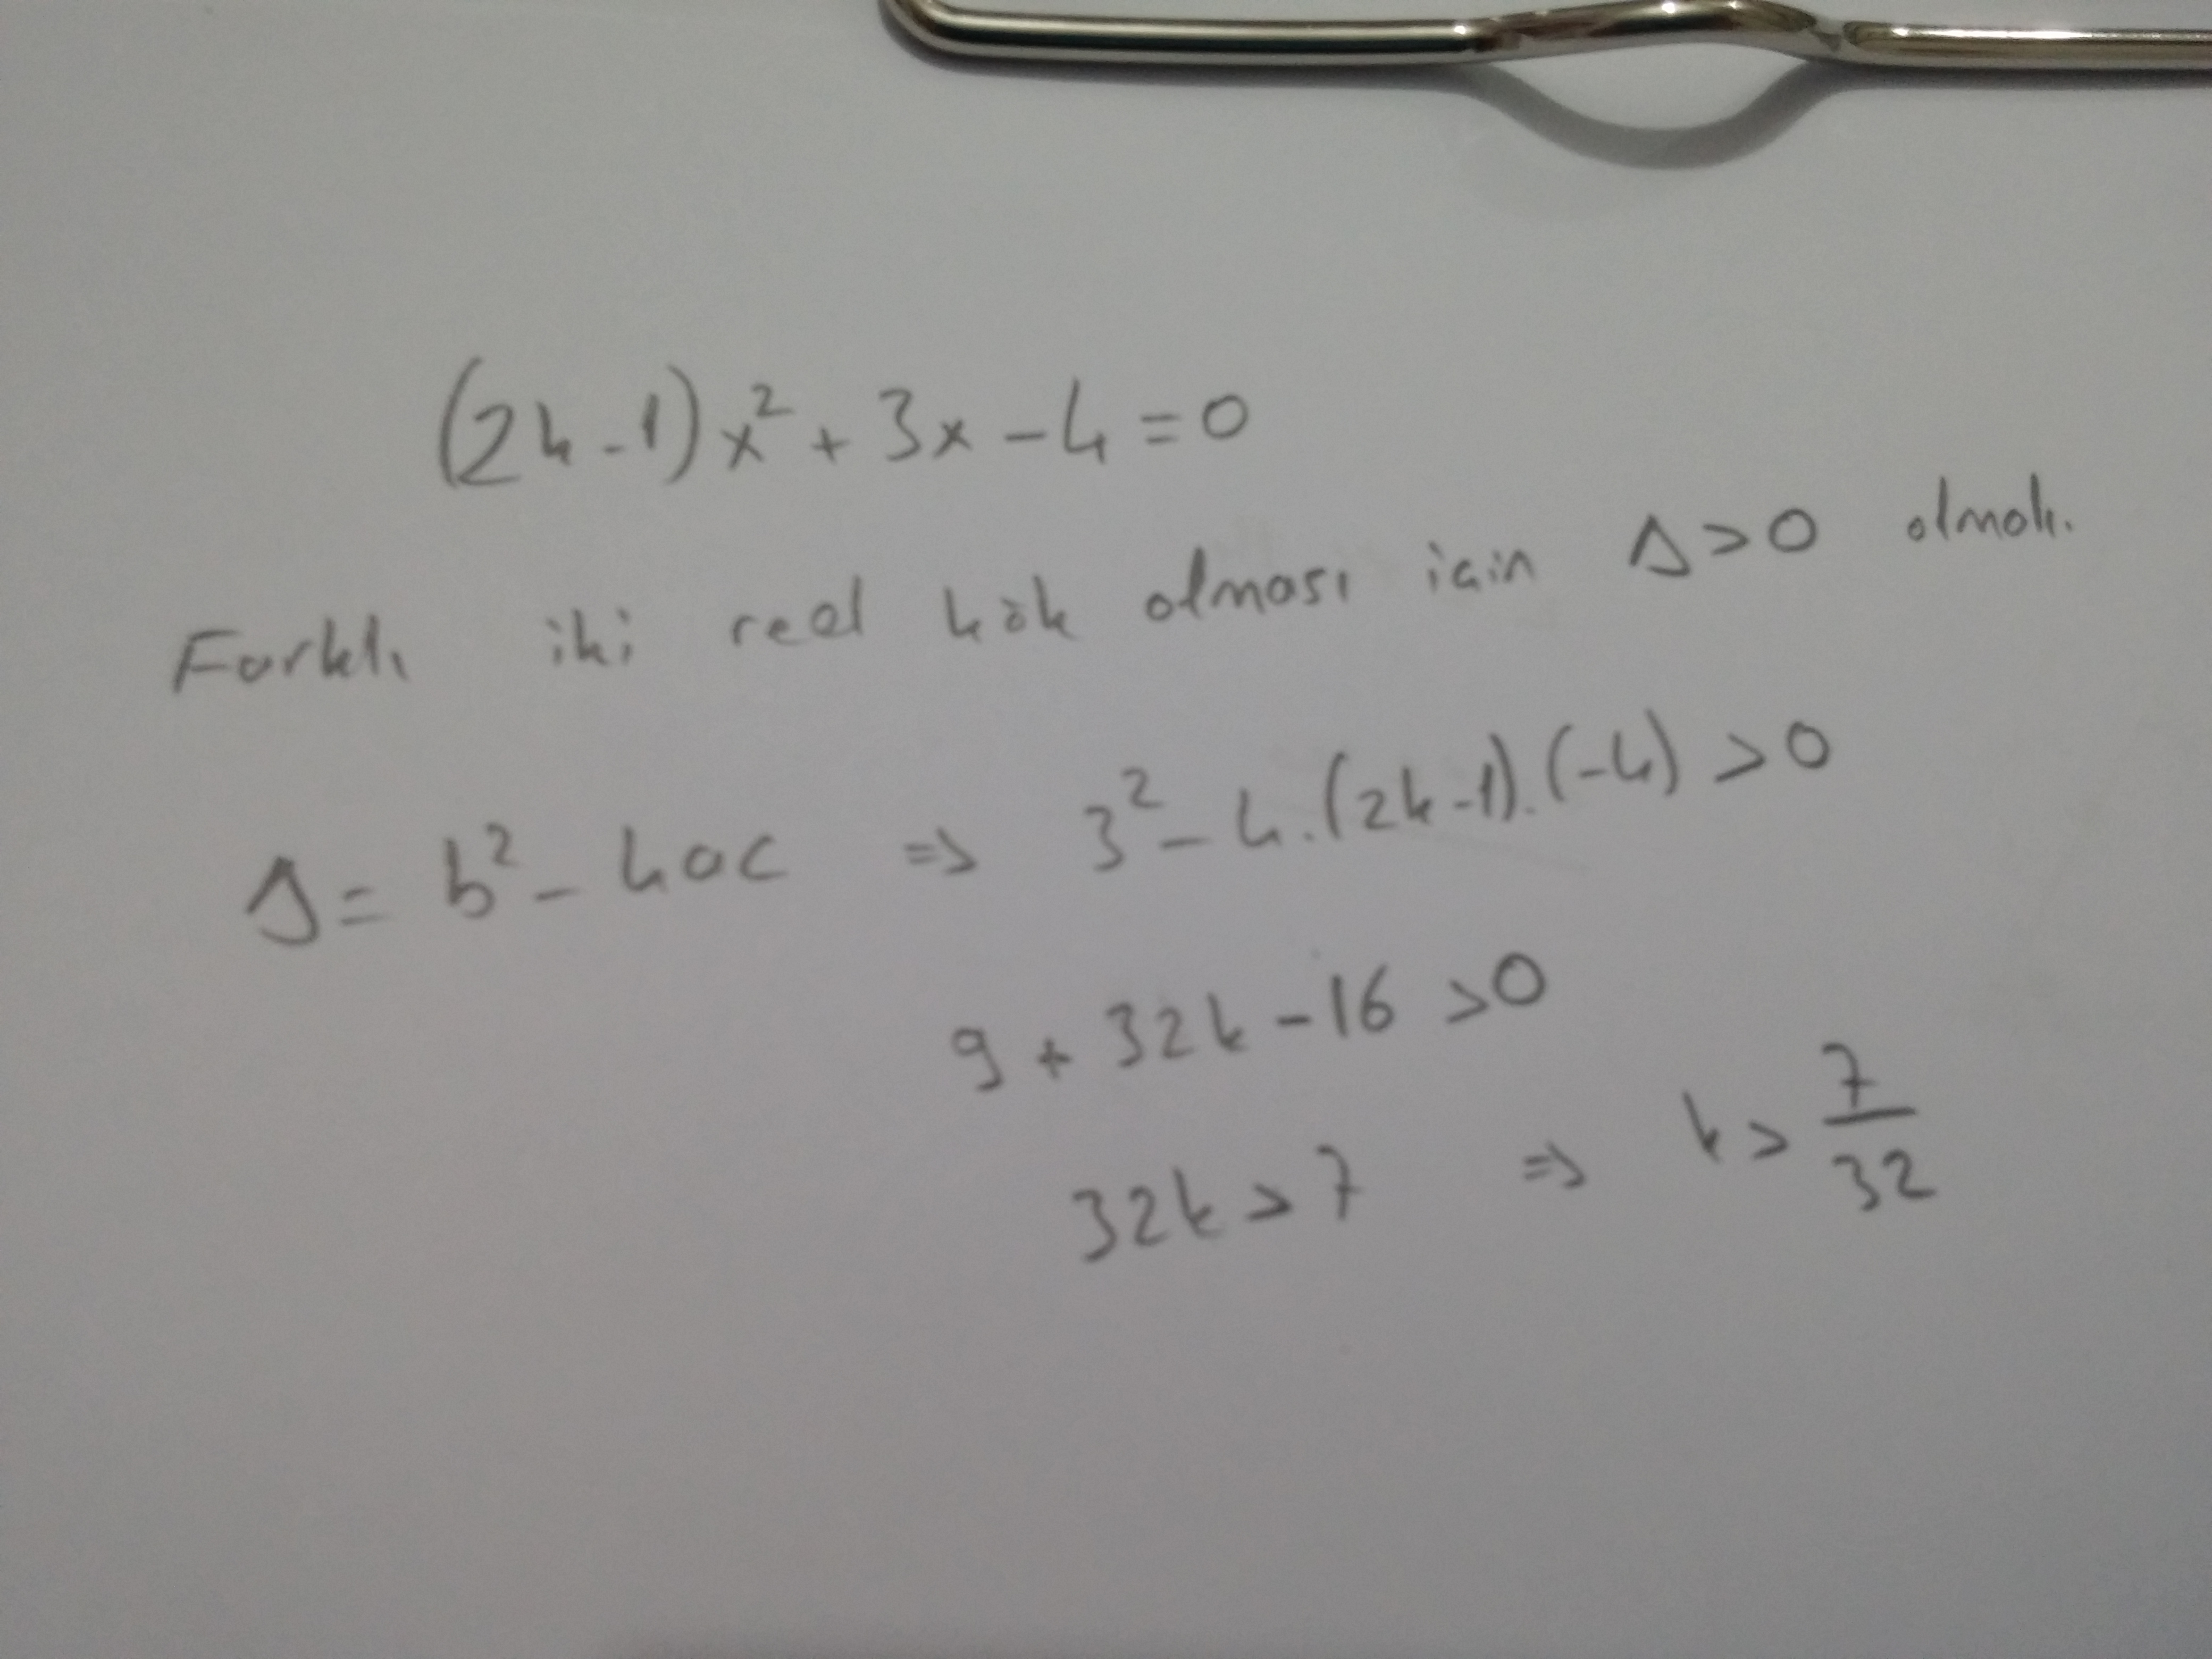 (2k-1)x² + 3x - 4 = 0
Farklı iki reel kök olması için Δ>0 olmalı.
Δ = b² - 4ac ⇒ 3² - 4.(2k-1).(-4) > 0
9 + 32k - 16 > 0
32k > 7 ⇒ k > 7/32